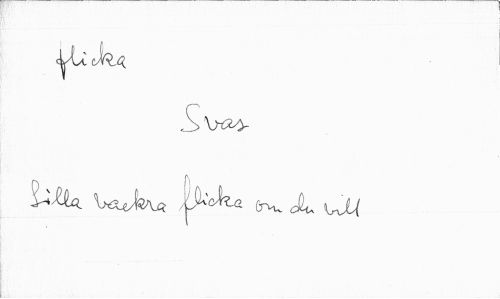 flicka
Svas
Lilla vackra flicka om du vill